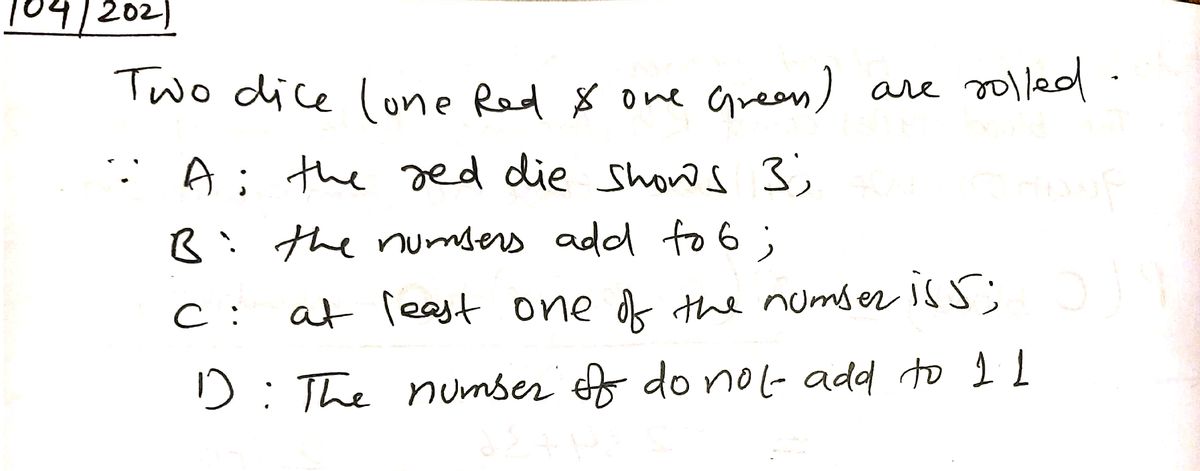 104/2021
Two dice (one Red & one Green) are rolled.
A; the red die shows 3;
B: the numbers add to 6;
C: at least one of the number is 5;
D: The number of do not add to 11